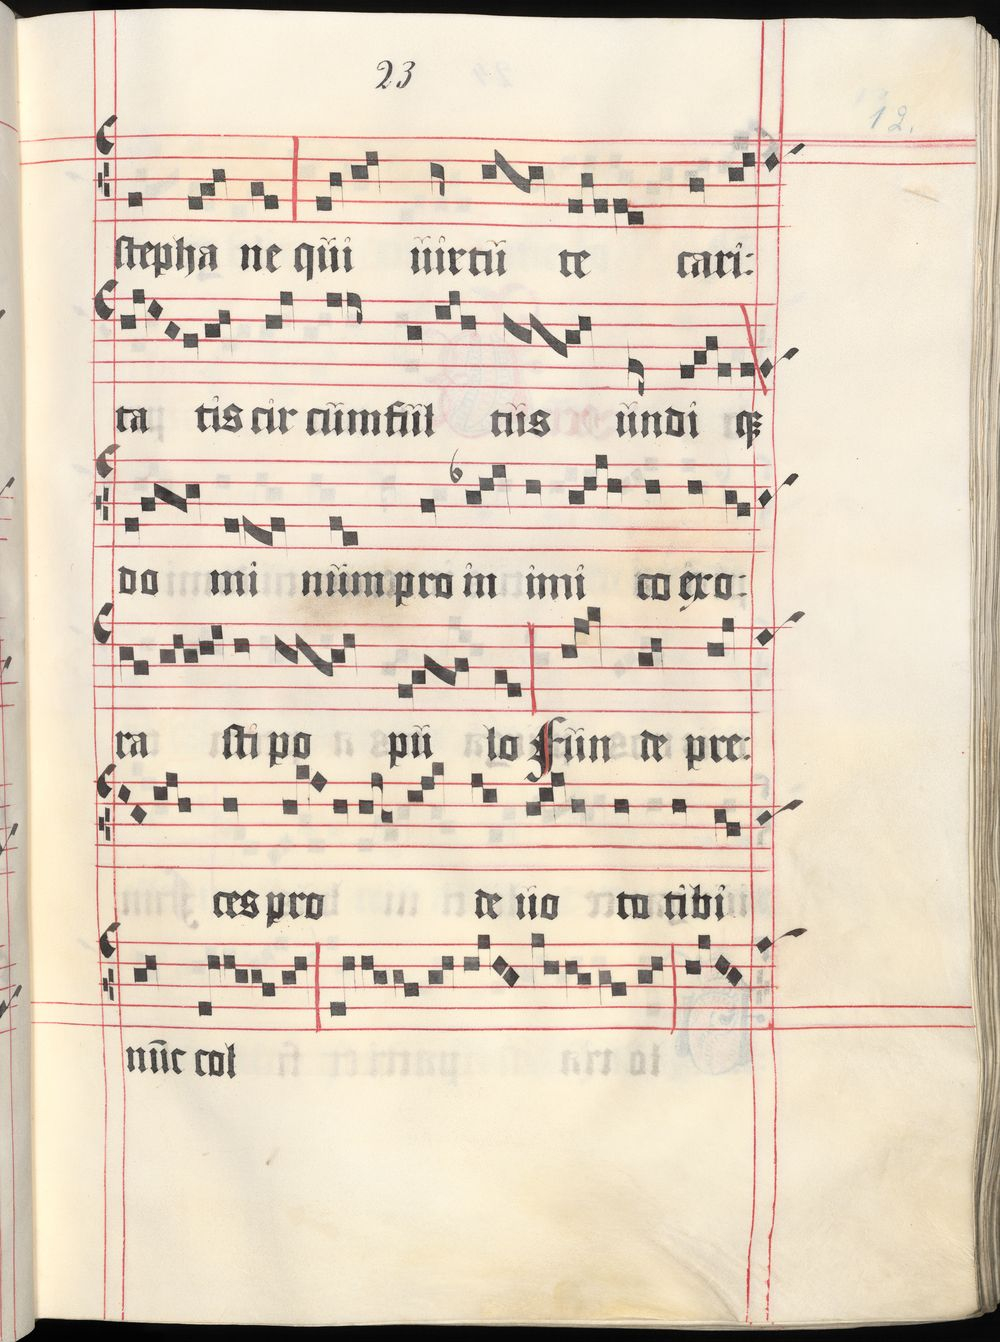 23
12.
stepha ne qui uirtu te cari:
ta tis cir cumful tus undi qꝫ
do mi num pro in imi co exo:
ra sti po pu lo Fun de pre:
ces pro de uo to tibi
nūc col